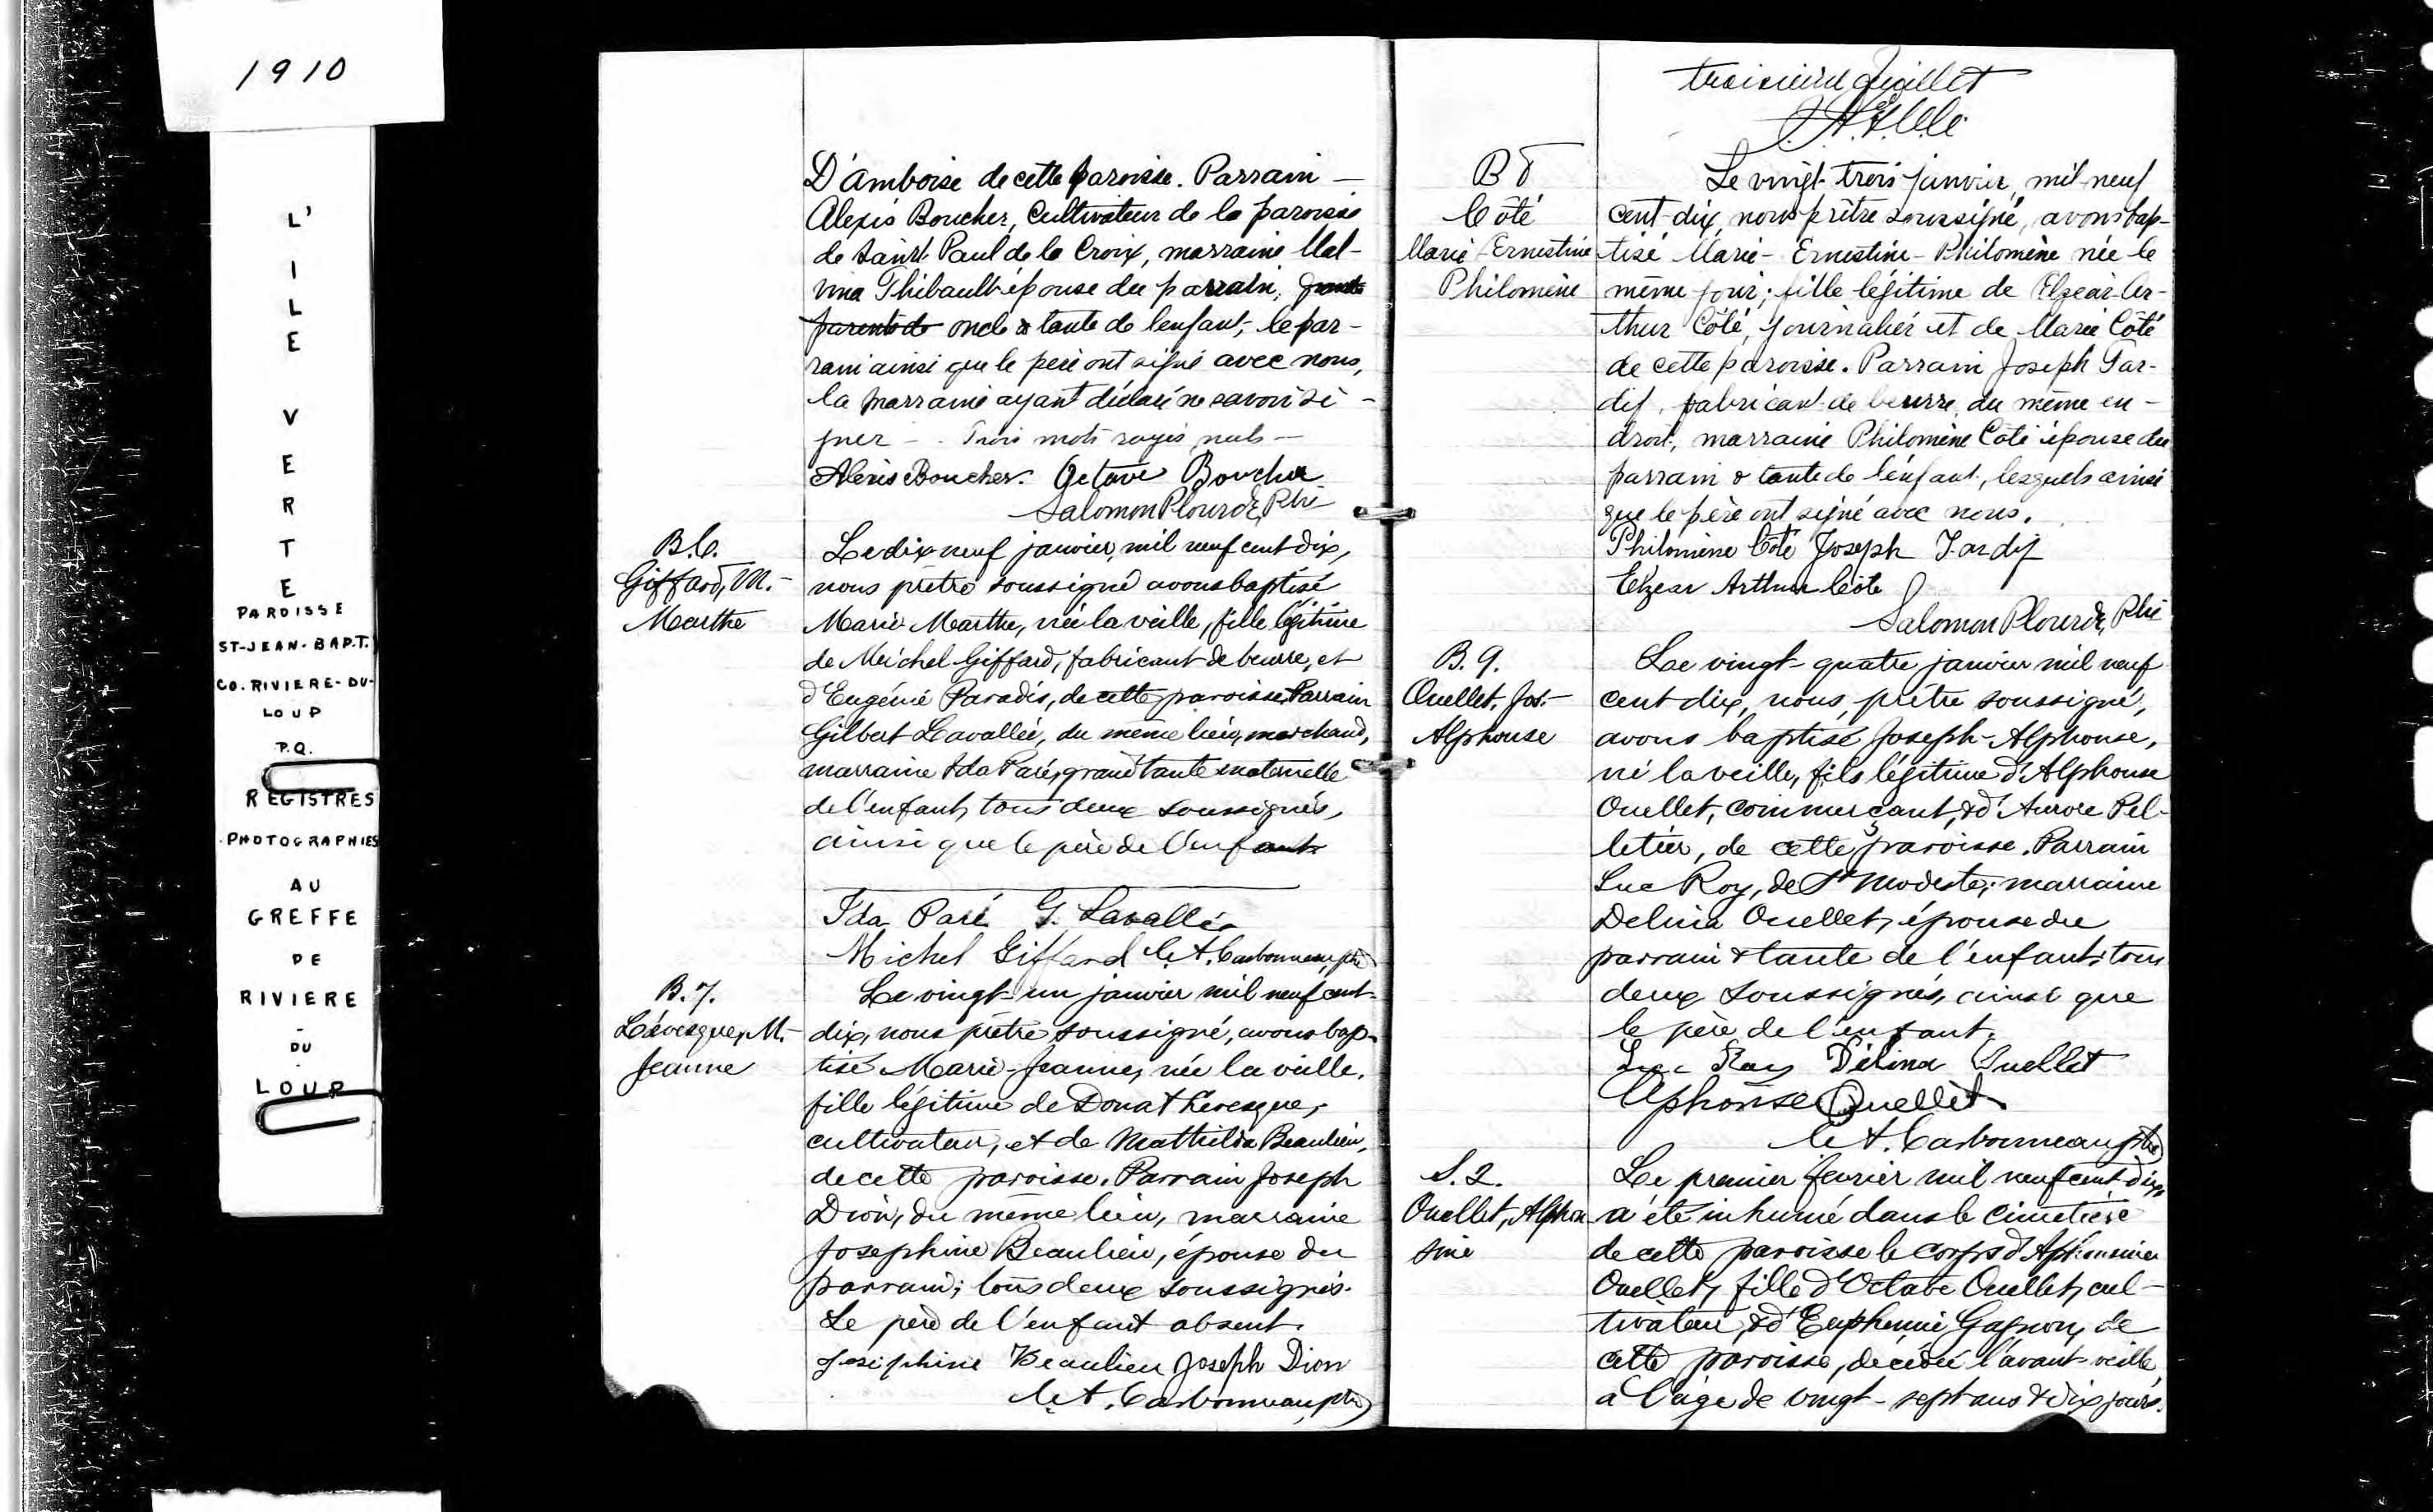 1910
L'
I
L
E
V
E
R
T
E
PAROISSE
ST-JEAN-BAP.T.
CO. RIVIERE-DU-
LOUP
P.Q.
REGISTRES
PHOTOGRAPHIES
AU
GREFFE
DE
RIVIERE
-
DU
LOUP
D'amboise de cette paroisse. Parrain —
Alexis Boucher, Cultivateur de la paroisse
de Saint Paul de la Croix, marraine Mal-
vina Thibault épouse du parrain,
parents de oncle & tante de l'enfant, le par-
rain ainsi que le père ont signé avec nous,
la marraine ayant déclaré ne savoir si-
gner — . Trois mots rayés nuls —
Alexis Boucher. Octave Boucher
Salomon Plourde, Ptre
B.6.
Giffard, M.-
Marthe
Le dix-neuf janvier, mil neuf cent-dix,
nous prêtre soussigné avons baptisé
Marie-Marthe, née la veille, fille légitime
de Michel Giffard, fabricant de beurre, et
d'Eugénie Paradis, de cette paroisse. Parrain
Gilbert Lavallée, du même lieu, marchand,
marraine Ida Paré, grand'tante maternelle
de l'enfant, tous deux soussignés,
ainsi que le père de l'enfant.
Ida Paré G. Lavallée
Michel Giffard A. Carbonneau, ptre
B.7.
Lévesque, M.-
Jeanne
Le vingt-un janvier mil neuf cent-
dix, nous prêtre soussigné, avons bap-
tisé Marie-Jeanne, née la veille,
fille légitime de Donat Lévesque,
cultivateur, et de Mathilda Beaulieu,
de cette paroisse. Parrain Joseph
Dion, du même lieu, marraine
Josephine Beaulieu, épouse du
parrain; tous deux soussignés.
Le père de l'enfant absent.
Joséphine Beaulieu Joseph Dion
A. Carbonneau, ptre
troisième feuillet
B 8
Côté
Marie Ernestine
Philomène
Le vingt-trois janvier, mil-neuf
cent-dix, nous prêtre soussigné, avons bap-
tisé Marie-Ernestine-Philomène née le
même jour; fille légitime de Elzéar-Ar-
thur Côté, journalier et de Marie Côté
de cette paroisse. Parrain Joseph Tar-
dif, fabricant de beurre, du même en-
droit, marraine Philomène Côté épouse du
parrain & tante de l'enfant, lesquels ainsi
que le père ont signé avec nous.
Philomène Côté Joseph Tardif
Elzear Arthur Côté
Salomon Plourde, Ptre
B. 9.
Ouellet, Jos.-
Alphonse
Le vingt-quatre janvier mil neuf
cent dix, nous, prêtre soussigné,
avons baptisé Joseph-Alphonse,
né la veille, fils légitime d'Alphonse
Ouellet, commerçant, & d'Aurore Pel-
letier, de cette paroisse. Parrain
Luc Roy, de St Modeste; marraine
Delina Ouellet, épouse du
parrain & tante de l'enfant; tous
deux soussignés, ainsi que
le père de l'enfant.
Luc Roy Délina Ouellet
Alphonse Ouellet
A. Carbonneau, ptre
S. 2.
Ouellet, Alphon-
sine
Le premier février mil neuf cent-dix,
a été inhumé dans le cimetière
de cette paroisse le corps d'Alphonsine
Ouellet, fille d'Octave Ouellet, cul-
tivateur, & d'Euphemie Gagnon, de
cette paroisse, décédée l'avant-veille,
à l'âge de vingt-sept ans & dix jours.